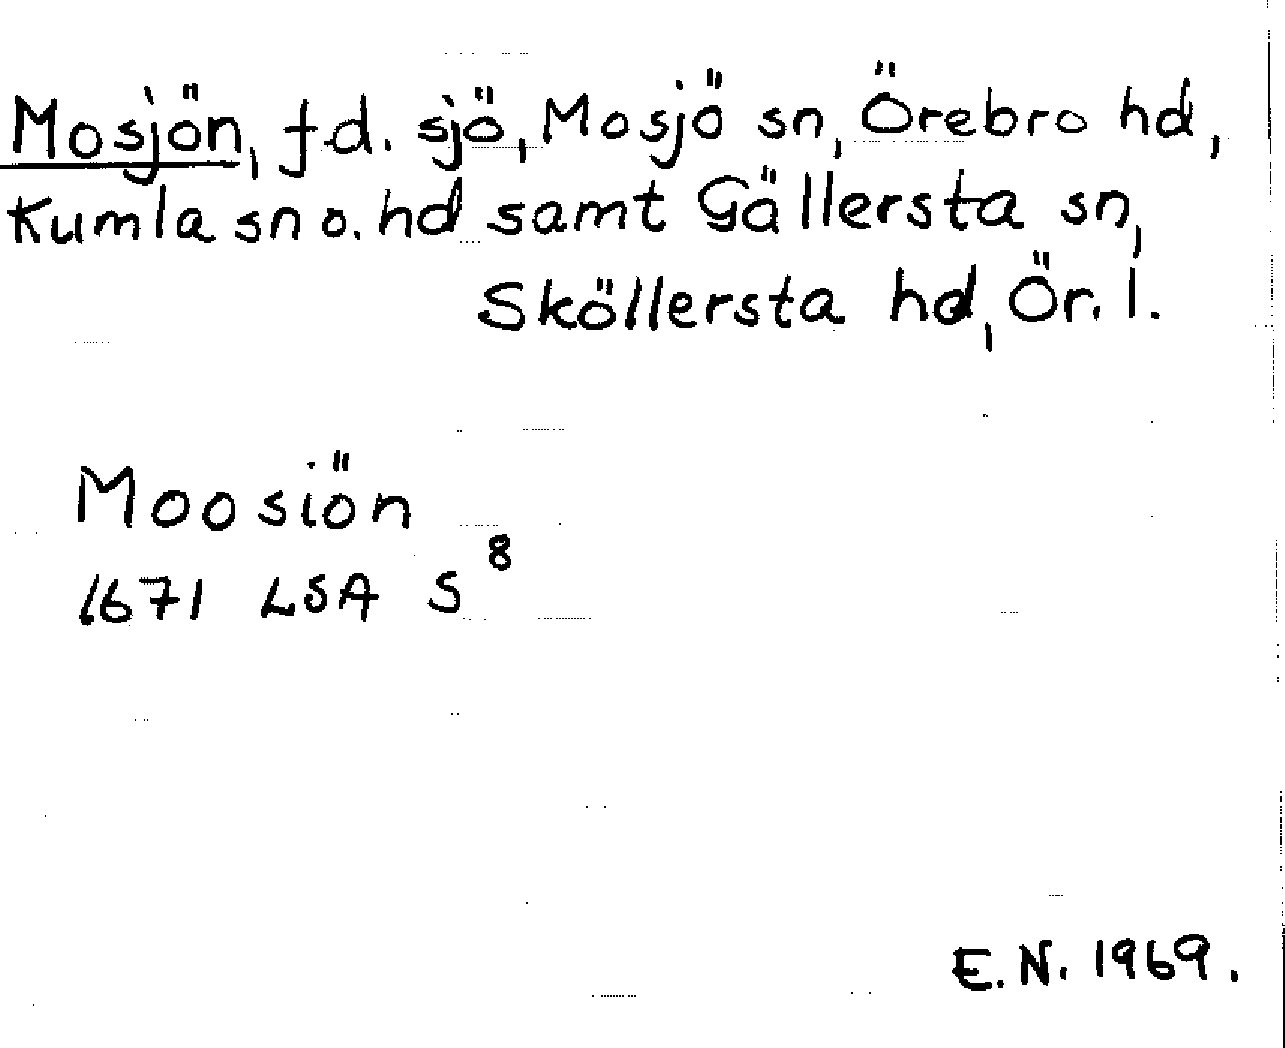 Mosjön, f.d. sjö, Mosjö sn, Örebro hd,
Kumla sn o. hd samt Gällersta sn,
Sköllersta hd, Ör. l.
Moosiön
1671 LSA S⁸
E.N. 1969.